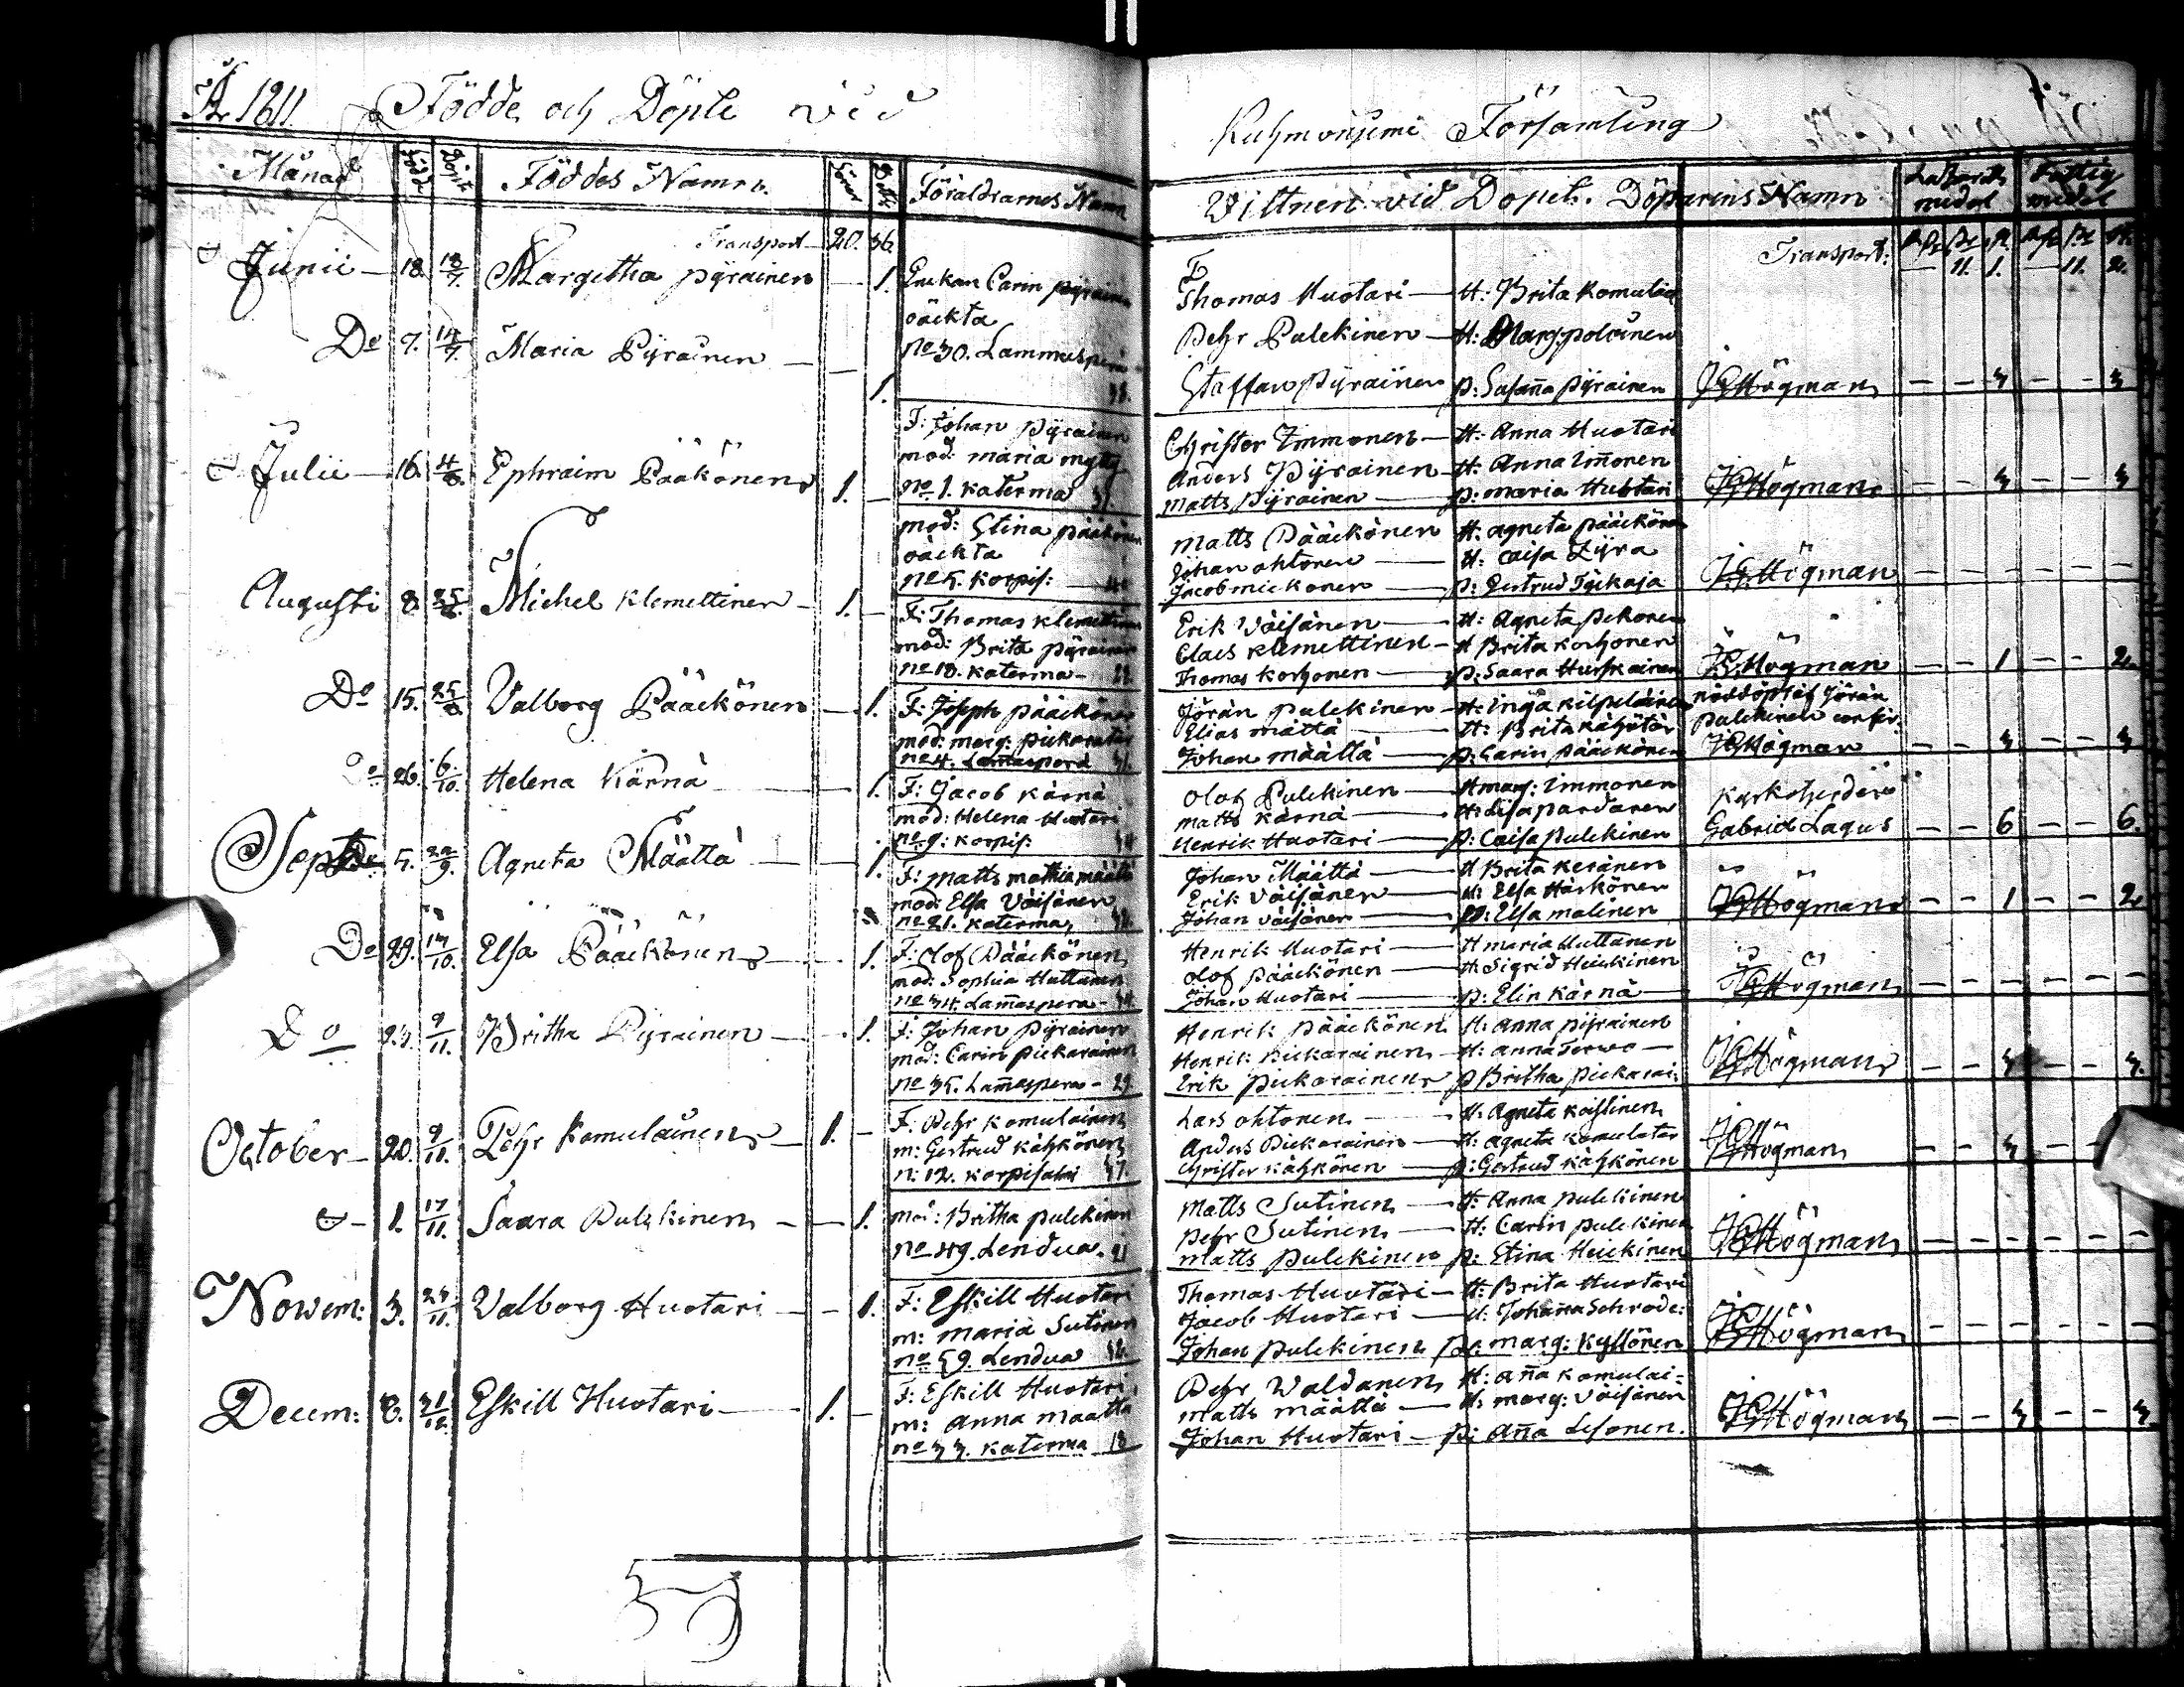 Åhr 1811. Födde och Döpte vid
Kuhmoniemi Församling
Månad Född Döpte Föddes Namn. Söner Dottr Föräldrarnes Namn
Wittnen vid Dopet. Döparens Namn Lazarets medel Fattig medel
Transport 20. 36.
Transport: 11. 1. 11. 2.
Junii 18. 18/7. Margetha Pyrainen 1. Enkan Carin Pyrainen
oäckta
No 30. Lammaspera 38.
Thomas Huotari H: Brita Komulai
Pehr Pulckinen H: Marg: Polvinen
Staffan Pyrainen P: Susaña Pyrainen Högman 3 3
Do 7. 14/7. Maria Pyrainen 1.
F: Johan Pyrainen
mod: Maria Mylly
No 1. Katerma 37.
Christer Immonen H: Anna Huotari
Anders Pyrainen H: Anna Im̃onen
Matts Pyrainen P: Maria Huotari Högman 3 3
Julii 16. 4/8. Ephraim Pääkönen 1.
mod: Stina Pääckönen
oäckta
No 5. Korpis:
Matts Pääckönen H: Agneta Pääckönen
Johan Ohtonen H: Caisa Zyra
Jacob Mickonen P: Gertrud Tyckäja Högman
Augusti 8. 25/8. Michel Klemettinen 1.
F: Thomas Klemettinen
mod: Brita Pyrainen
No 18. Katerma 22.
Erik Väisänen H: Agneta Pekonen
Claes Klemettinen H Brita Korhonen
Thomas Korhonen P: Saara Hurskainen Högman 1 2
Do 15. 25/8. Valborg Pääckönen 1.
F: Joseph Pääckönen
mod: Marg: Pickarater
No 4. Lam̃aspera 31.
Jöran Pulckinen H: Inga Kilpeläinen nöddöpt af Jöran
Elias Määttä H: Brita Kähötär Pulckinen confir:
Johan Määttä P: Carin Pääckönen Högman 3 3
Do 26. 6/10. Helena Kärnä 1.
F: Jacob Kärnä
mod: Helena Huotari
No 9: Korpis: 34
Olof Pulckinen H Marg: Immonen Kyrkoherden
Matts Kärnä H: Lisa Pardanen
Henrik Huotari P: Caisa Pulckinen Gabriel Lagus 6 6.
Sept. 5. 22/9. Agneta Määttä 1.
F: Matts Mathia Määttä
mod: Elsa Väisänen
No 21. Katerma
Johan Määttä H Brita Keränen
Erik Väisänen H: Elsa Härkönen
Johan Väisänen P: Elsa Malinen Högman 1 2
Do 29. 14/10. Elsa Pääckönen 1.
F: Olof Pääckönen
mod: Sophia Huttunen
No 34. Lam̃aspera 34.
Henrik Huotari H Maria Huttanen
Olof Pääckönen H: Sigrid Heickinen
Johan Huotari P: Elin Kärnä Högman
Do 23. 9/11. Britha Pyrainen 1.
F: Johan Pyrainen
mod: Carin Pickarainen
No 35. Lam̃aspera 29.
Henrik Pääckönen H: Anna Pyrainen
Henrik Pickarainen H: Anna Terwo
Erik Pickarainen P Britha Pickarai: Högman 3 3.
October 20. 9/11. Pehr Komulainen 1.
F: Pehr Komulainen
m: Gertrud Kähkönen
N: 12. Korpisalmi 37.
Lars Ohtonen H: Agneta Koistinen
Anders Pickarainen H: Agneta Komulater
Christer Kähkönen P: Gertrud Kähkönen Högman 3
1. 17/11. Saara Pulckinen 1.
mod: Britha Pulckinen
No 49. Lendua. 21
Matts Sutinen H: Anna Pulckinen
Pehr Sutinen H: Carin Pulckinen
Matts Pulckinen P: Stina Heickinen Högman
Novem: 3. 24/11. Valborg Huotari 1.
F: Eskill Huotari
m: Maria Sutinen
No 59. Lendua 32.
Thomas Huotari H: Brita Huotari
Jacob Huotari H: Johaña Schrode:
Johan Pulckinen P: Marg: Kyllönen Högman
Decem: 8. 31/12. Eskill Huotari 1.
F: Eskill Huotari
m: Anna Maatta
No 33. Katerma 18
Pehr Waldanen H: Aña Komulai=
Matts Määttä H: Marg: Väisänen
Johan Huotari P: Aña Lesonen. Högman 3 3